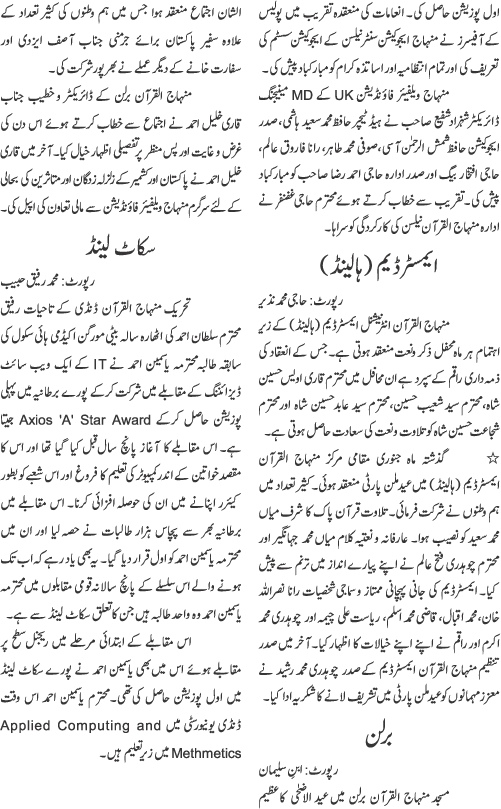 اول پوزیشن حاصل کی۔ انعامات کی منعقدہ تقریب میں پولیس
کے آفیسرز نے منہاج ایجوکیشن سنٹر نیلسن کے ایجوکیشن سسٹم کی
تعریف کی اور تمام انتظامیہ اور اساتذہ کرام کو مبارکباد پیش کی۔
منہاج ویلفیئر فاؤنڈیشن UK کے MD مینیجنگ
ڈائریکٹر شہزاد شفیع صاحب نے ہیڈ ٹیچر حافظ محمد سعید ہاشمی، صدر
ایجوکیشن حافظ شمش الرحمٰن آسی، صوفی محمد طاہر، رانا فاروق عالم،
حاجی افتخار بیگ اور صدر ادارہ حاجی احمد رضا صاحب کو مبارکباد
پیش کی۔ تقریب سے خطاب کرتے ہوئے محترم حاجی غضنفر نے
ادارہ منہاج القرآن نیلسن کی کارکردگی کو سراہا۔
ایمسٹرڈیم (ہالینڈ)
رپورٹ: حاجی محمد نذیر
منہاج القرآن انٹرنیشنل ایمسٹرڈیم (ہالینڈ) کے زیر
اہتمام ہر ماہ محفل ذکر و نعت منعقد ہوتی ہے۔ جس کے انعقاد کی
ذمہ داری راقم کے سپرد ہے ان محافل میں محترم قاری اویس حسین
شاہ، محترم سید شعیب حسین، محترم سید عابد حسین شاہ اور محترم
شجاعت حسین شاہ کو تلاوت و نعت کی سعادت حاصل ہوتی ہے۔
☆ گذشتہ ماہ جنوری مقامی مرکز منہاج القرآن
ایمسٹرڈیم (ہالینڈ) میں عید ملن پارٹی منعقد ہوئی۔ کثیر تعداد میں
ہم وطنوں نے شرکت فرمائی۔ تلاوت قرآن پاک کا شرف میاں
محمد سعید کو نصیب ہوا۔ عارفانہ و نعتیہ کلام میاں محمد جہانگیر اور
محترم چوہدری فتح عالم نے اپنے پیارے انداز میں ترنم سے پیش
کیا۔ ایمسٹرڈیم کی جانی پہچانی ممتاز و سماجی شخصیات رانا نصراللہ
خان، محمد اقبال، قاضی محمد اسلم، ریاست علی چیمہ اور چوہدری محمد
اکرم اور راقم نے اپنے اپنے خیالات کا اظہار کیا۔ آخر میں صدر
تنظیم منہاج القرآن ایمسٹرڈیم کے صدر چوہدری محمد رشید نے
معزز مہمانوں کو عید ملن پارٹی میں تشریف لانے کا شکریہ ادا کیا۔
برلن
رپورٹ: ابن سلیمان
مسجد منہاج القرآن برلن میں عید الاضحٰی کا عظیم
الشان اجتماع منعقد ہوا جس میں ہم وطنوں کی کثیر تعداد کے
علاوہ سفیر پاکستان برائے جرمنی جناب آصف ایزدی اور
سفارت خانے کے دیگر عملے نے بھرپور شرکت کی۔
منہاج القرآن برلن کے ڈائریکٹر و خطیب جناب
قاری خلیل احمد نے اجتماع سے خطاب کرتے ہوئے اس دن کی
غرض و غایت اور پس منظر پر تفصیلی اظہار خیال کیا۔ آخر میں قاری
خلیل احمد نے پاکستان اور کشمیر کے زلزلہ زدگان اور متاثرین کی بحالی
کے لئے سرگرم منہاج ویلفیئر فاؤنڈیشن سے مالی تعاون کی اپیل کی۔
سکاٹ لینڈ
رپورٹ: محمد رفیق حبیب
تحریک منہاج القرآن ڈنڈی کے تاحیات رفیق
محترم سلطان احمد کی اٹھارہ سالہ بیٹی مورگن اکیڈمی ہائی سکول کی
سابقہ طالبہ محترمہ یاسمین احمد نے IT کے ایک ویب سائٹ
ڈیزائننگ کے مقابلے میں شرکت کر کے پورے برطانیہ میں پہلی
پوزیشن حاصل کر کے Axios 'A' Star Award جیتا
ہے۔ اس مقابلے کا آغاز پانچ سال قبل کیا گیا تھا اور اس کا
مقصد خواتین کے اندر کمپیوٹر کی تعلیم کا فروغ اور اس شعبے کو بطور
کیئرر اپنانے میں ان کی حوصلہ افزائی کرنا۔ اس مقابلے میں
برطانیہ بھر سے پچاس ہزار طالبات نے حصہ لیا اور ان میں
محترمہ یاسمین احمد کو اول قرار دیا گیا۔ یہ بھی یاد رہے کہ اب تک
ہونے والے اس سلسلے کے پانچ سالانہ قومی مقابلوں میں محترمہ
یاسمین احمد وہ واحد طالبہ ہیں جن کا تعلق سکاٹ لینڈ سے ہے۔
اس مقابلے کے ابتدائی مرحلے میں ریجنل سطح پر
مقابلے ہوئے اس میں بھی یاسمین احمد نے پورے سکاٹ لینڈ
میں اول پوزیشن حاصل کی تھی۔ محترم یاسمین احمد اس وقت
ڈنڈی یونیورسٹی میں Applied Computing and
Methmetics میں زیر تعلیم ہیں۔